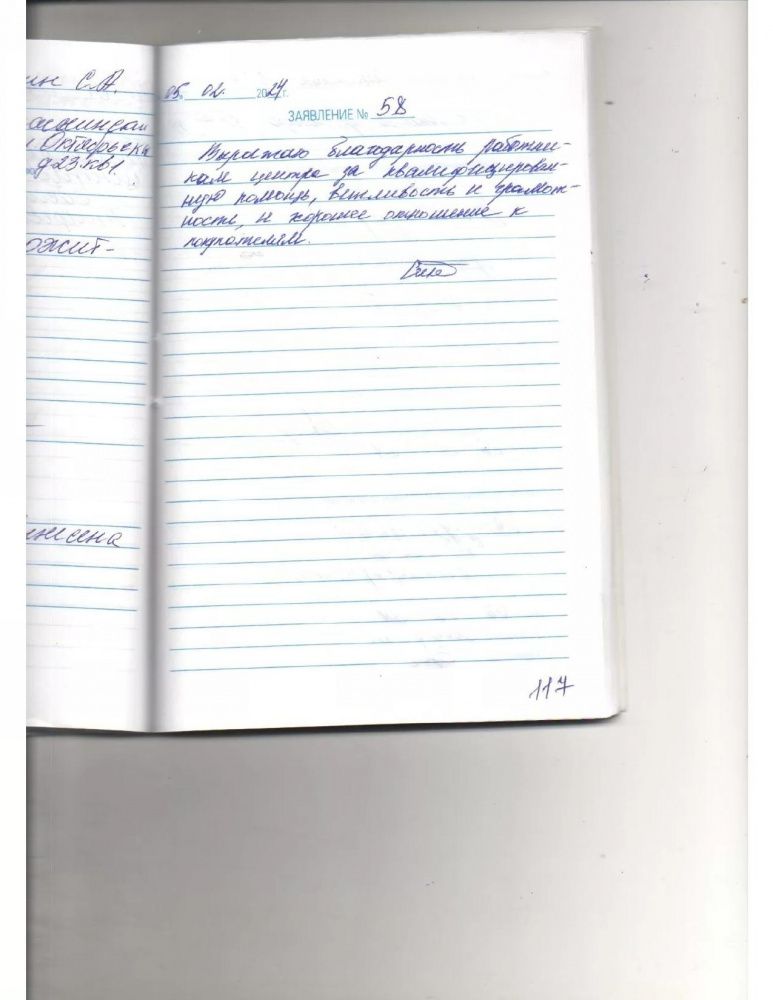 ин С.А.
Октябрьск
д23.кв1.
ожит-
05. 02. 2024г.
ЗАЯВЛЕНИЕ № 58
Выражаю благодарность работни-
кам центра за квалифицирован-
ную помощь, вежливость и грамот-
ность, и хорошее отношение к
покупателям.
117